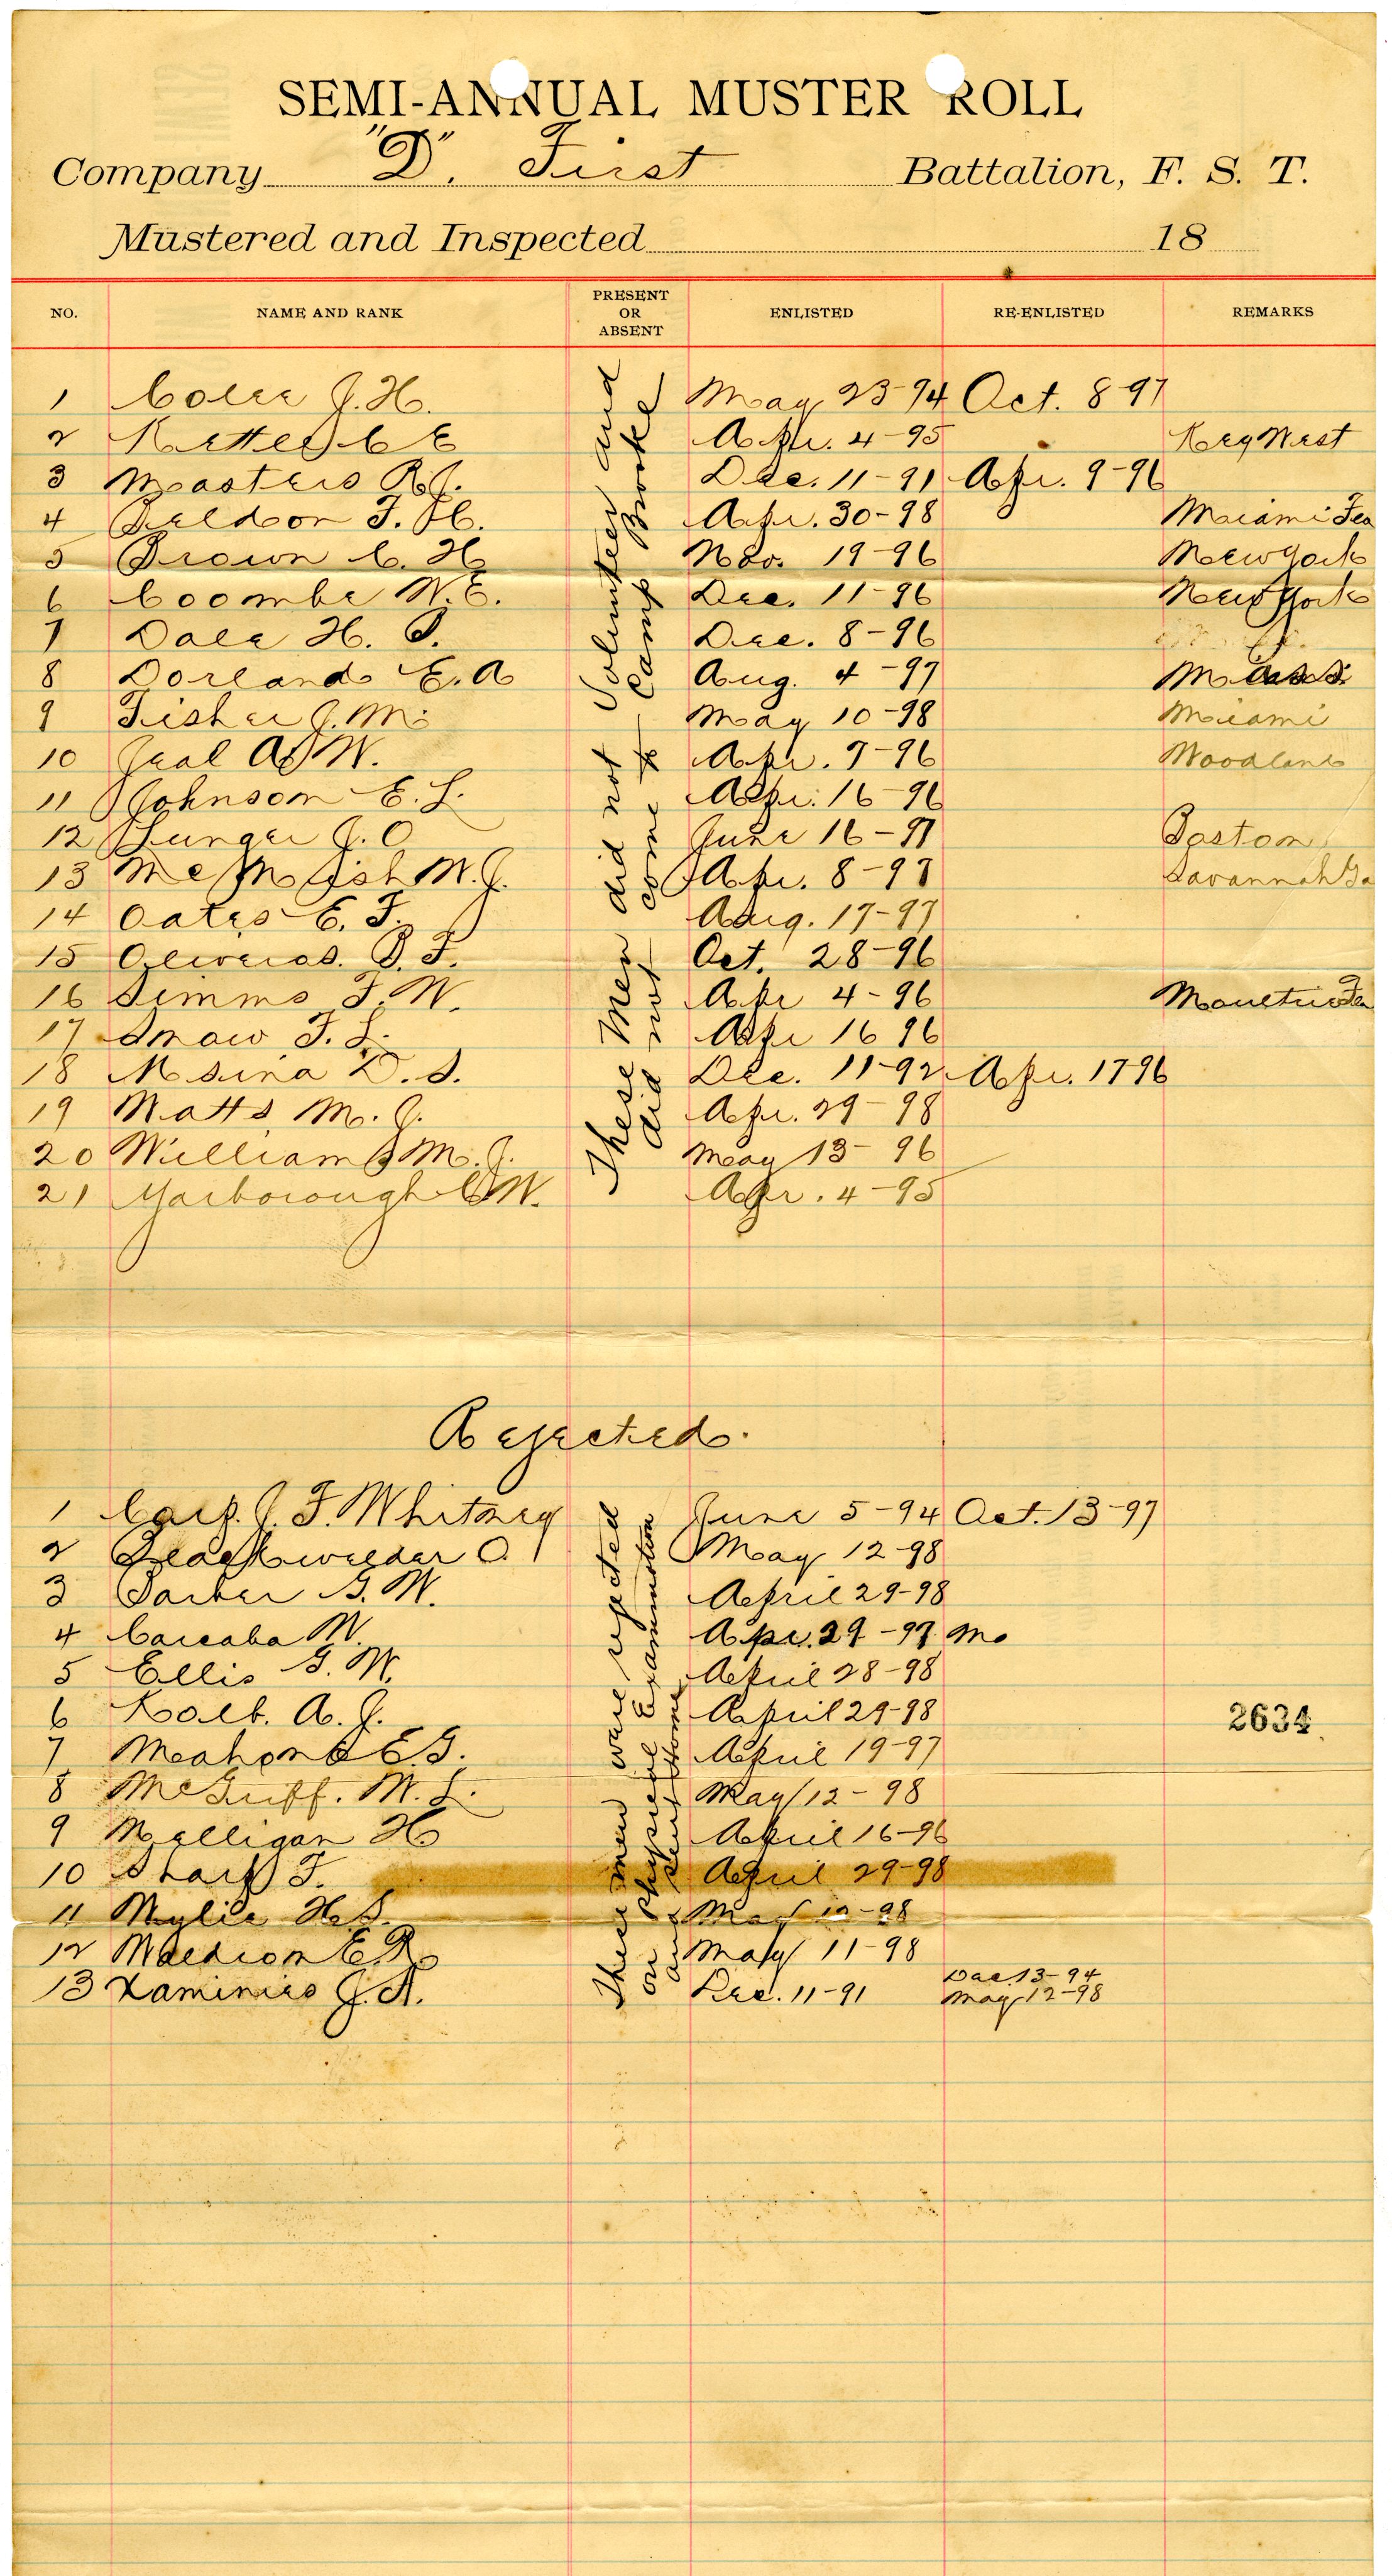 SEMI-ANNUAL MUSTER ROLL
Company "D". First Battalion, F. S. T.
Mustered and Inspected 18
NO. NAME AND RANK PRESENT OR ABSENT ENLISTED RE-ENLISTED REMARKS
These Men did not Volunteer and
did not come to Camp Brooke
1 Colee J. H. May 23-94 Oct. 8-97
2 C E Apr. 4-95 Key West
3 Masters R. J. Dec. 11-91 Apr. 9-96
4 F. H. Apr. 30-98 Miami Fla
5 Brown C. H. Nov. 19-96 New York
6 Coombe W. E. Dec. 11-96 New York
7 Dale H. P. Dec. 8-96
8 Dorland E. A Aug. 4-97 Mass.
9 Fisher J. M. May 10-98 Miami
10 W. Apr. 7-96 Woodland
11 Johnson E. L. Apr. 16-96
12 J. O June 16-97 Boston
13 W. J. Apr. 8-97 Savannah Ga
14 Oates E. F. Aug. 17-97
15 Oliveros. B. F. Oct. 28-96
16 Simms F. W. Apr 4-96 Fla
17 Snow F. L. Apr 16 96
18 Usina D. S. Dec. 11-92 Apr. 17-96
19 Watts, M. J. Apr. 29-98
20 Williams M. J. May 13-96
21 Marborough C W. Apr. 4-95
Rejected.
These men were rejected
on Physical Examination
and sent Home
1 Corp. J. F. Whitney June 5-94 Oct. 13-97
2 Blackwelder O. May 12-98
3 Barber G. W. April 29-98
4 Carcaba W. Apr. 29-97 Mo
5 Ellis G. W. April 28-98
6 Kolb. A. J. April 29-98
7 E G. April 19-97
8 McGriff. W. L. May 12-98
9 Mulligan H April 16-96
10 Sharp F. April 29-98
11 Wylie H. S. May 12-98
12 Waldron E. R. May 11-98
13 Ximinies J. A. Dec. 11-91 Dec. 13-94
May 12-98
2634